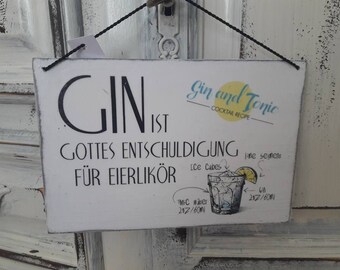 GIN IST
GOTTES ENTSCHULDIGUNG
FÜR EIERLIKÖR
Gin and Tonic
COCKTAIL RECIPE
ice cubes
lime segment
gin
2oz/60ml
2oz/60ml